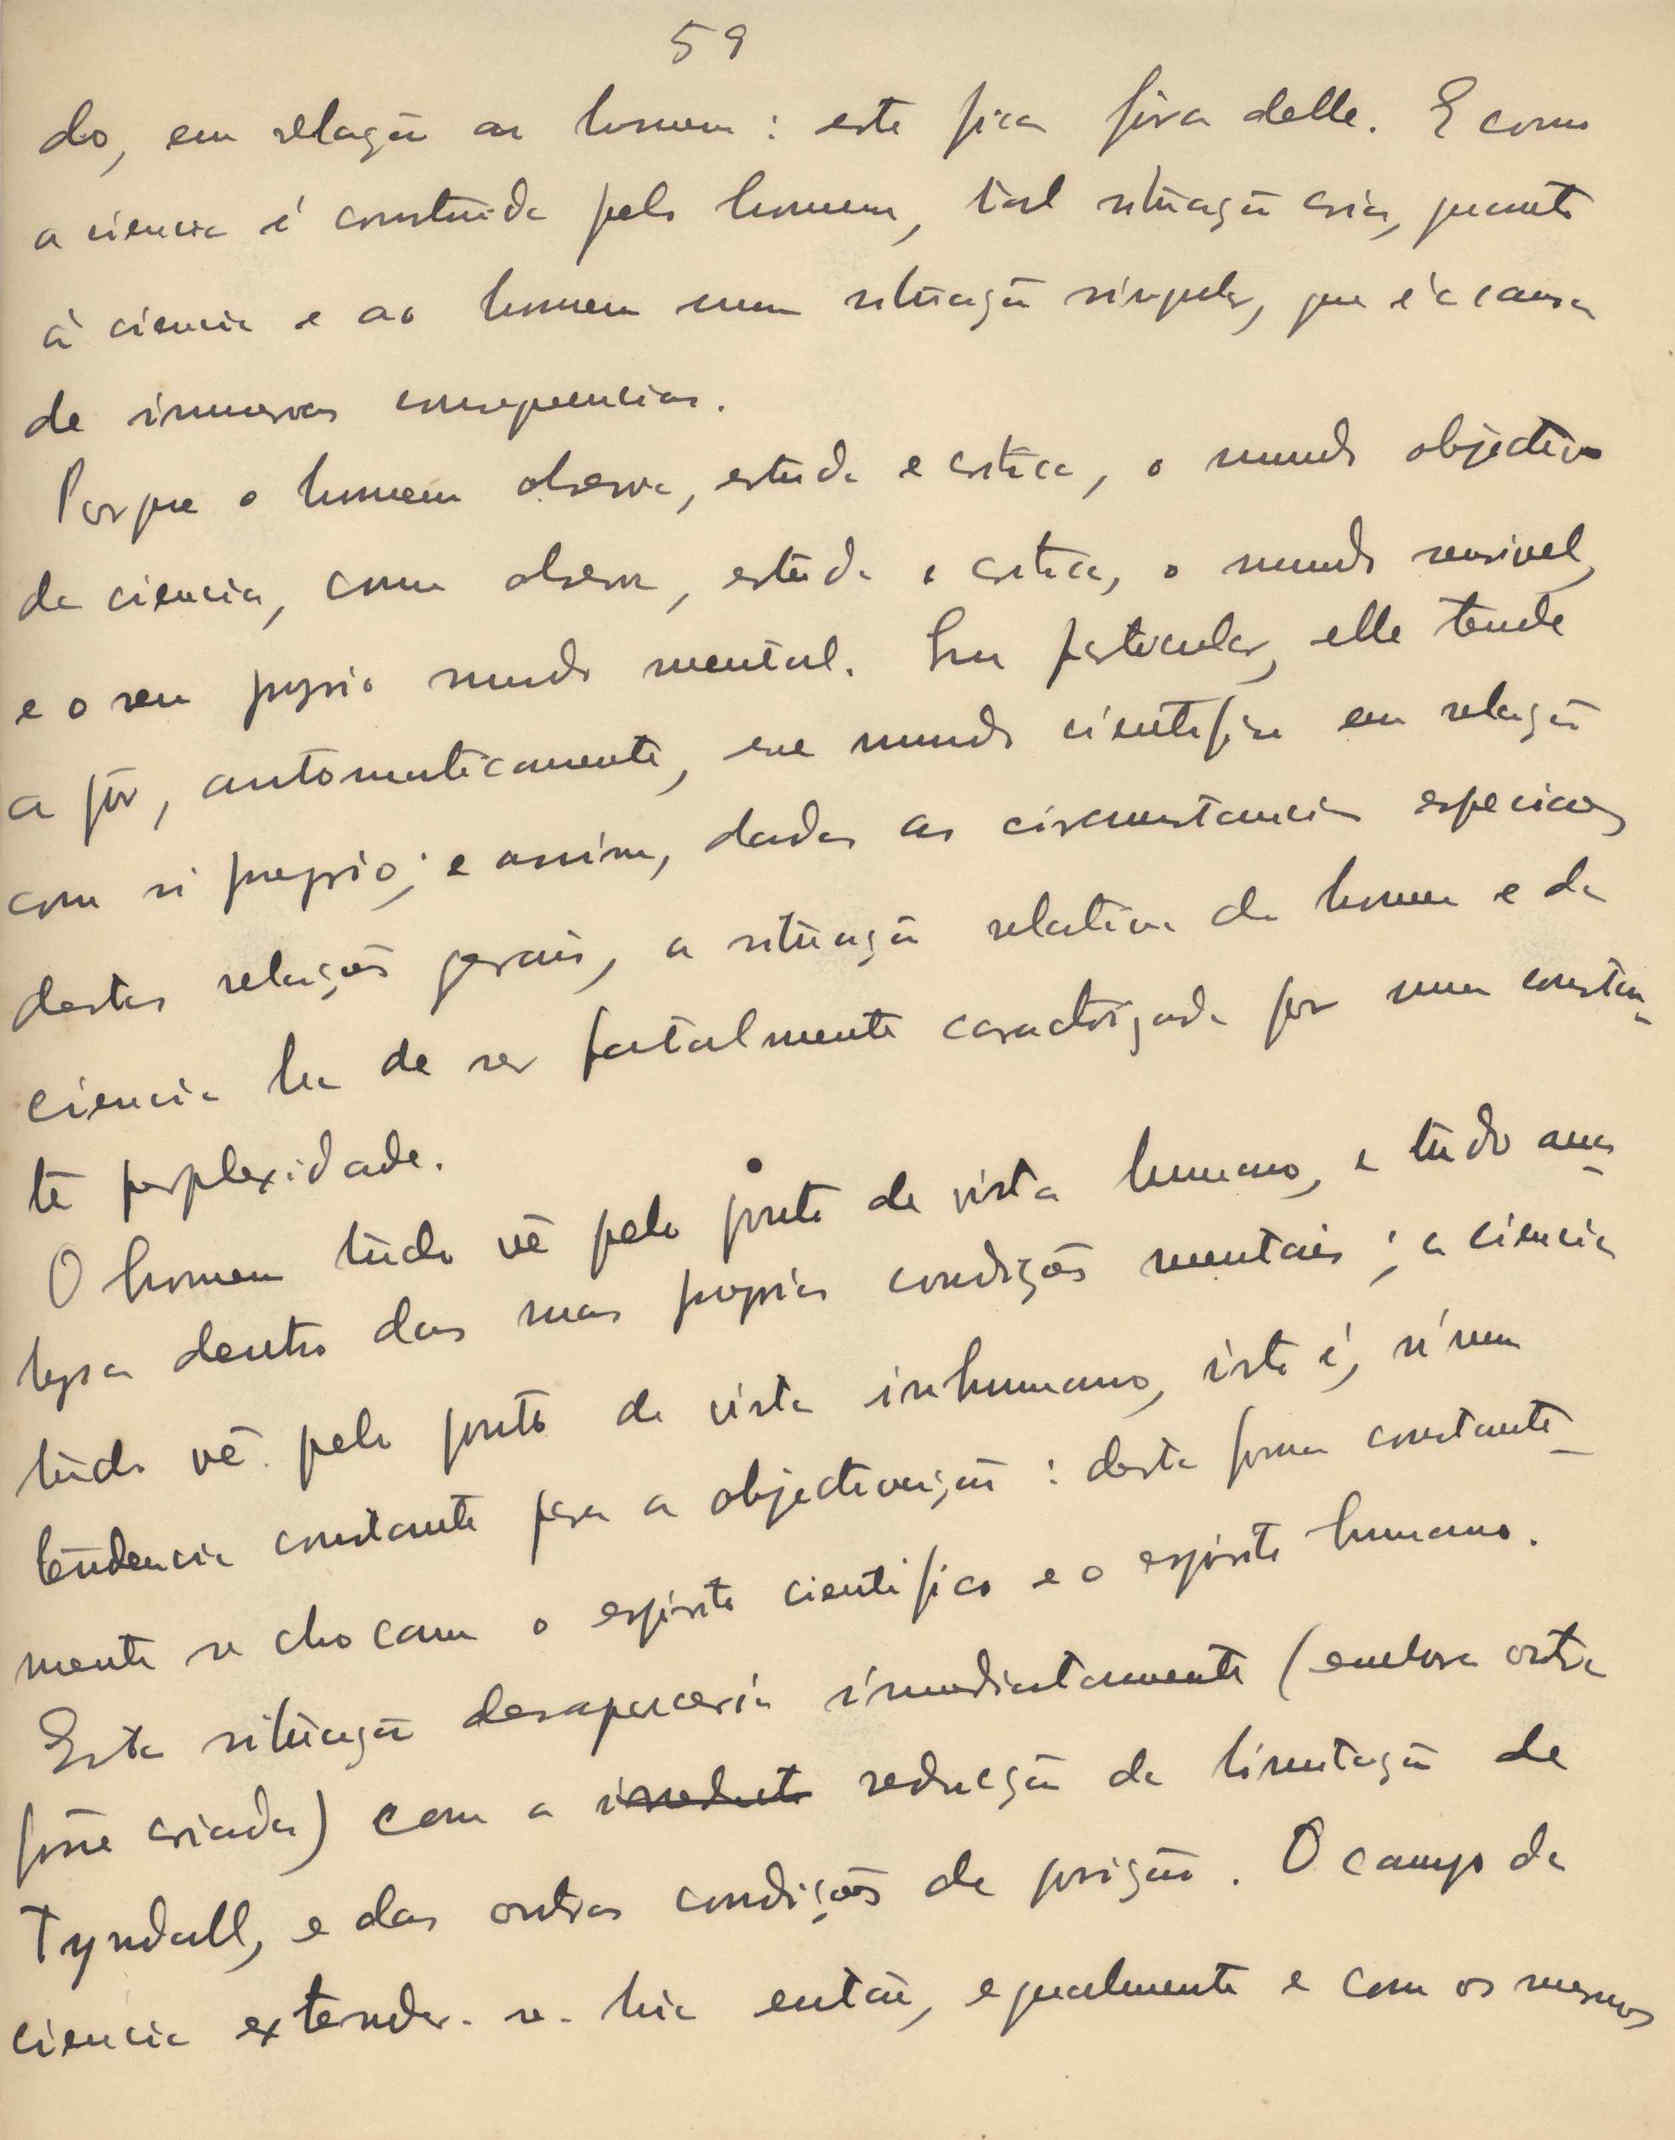 59
do, em relação ao homem: este fica fóra delle. E como
a ciencia é construida pelo homem, tal situação cria, quanto
á ciencia e ao homem uma situação singular, que é a causa
de inumeras consequencias.
Porque o homem observa, estuda e critica, o mundo objectivo
da ciencia, como observa, estuda e critica, o mundo sensivel,
e o seu proprio mundo mental. Em particular, elle tende
a pôr, automaticamente, esse mundo cientifico em relação
com si proprio; e assim, dadas as circumstancias especiaes
destas relações gerais, a situação relativa do homem e da
ciencia ha de ser fatalmente caracterizada por uma constan-
te perplexidade.
O homem tudo vê pelo ponto de vista humano, e tudo ana-
lysa dentro das suas proprias condições mentais; a ciencia
tudo vê pelo ponto de vista inhumano, isto é, n'uma
tendencia constante para a objectivação: desta forma constante-
mente se chocam o espirito cientifico e o espirito humano.
Esta situação desapareceria immediatamente (embora outra
fosse criada) com a irreducta reducção da limitação de
Tyndall, e das outras condições de posição. O campo da
ciencia extender-se-hia então, egualmente e com os mesmos